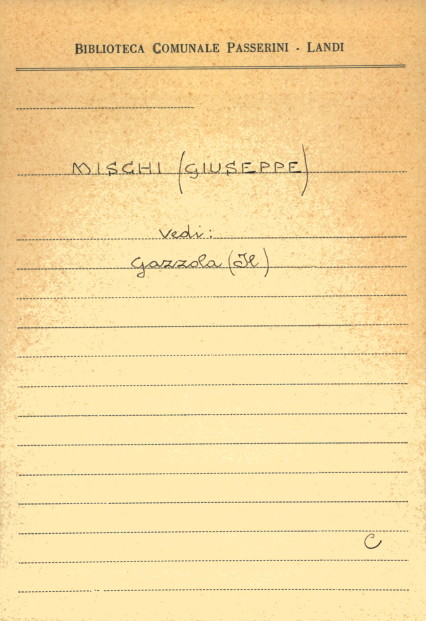 BIBLIOTECA COMUNALE PASSERINI - LANDI
MISCHI (GIUSEPPE)
Vedi:
Gazzola (Il)
C